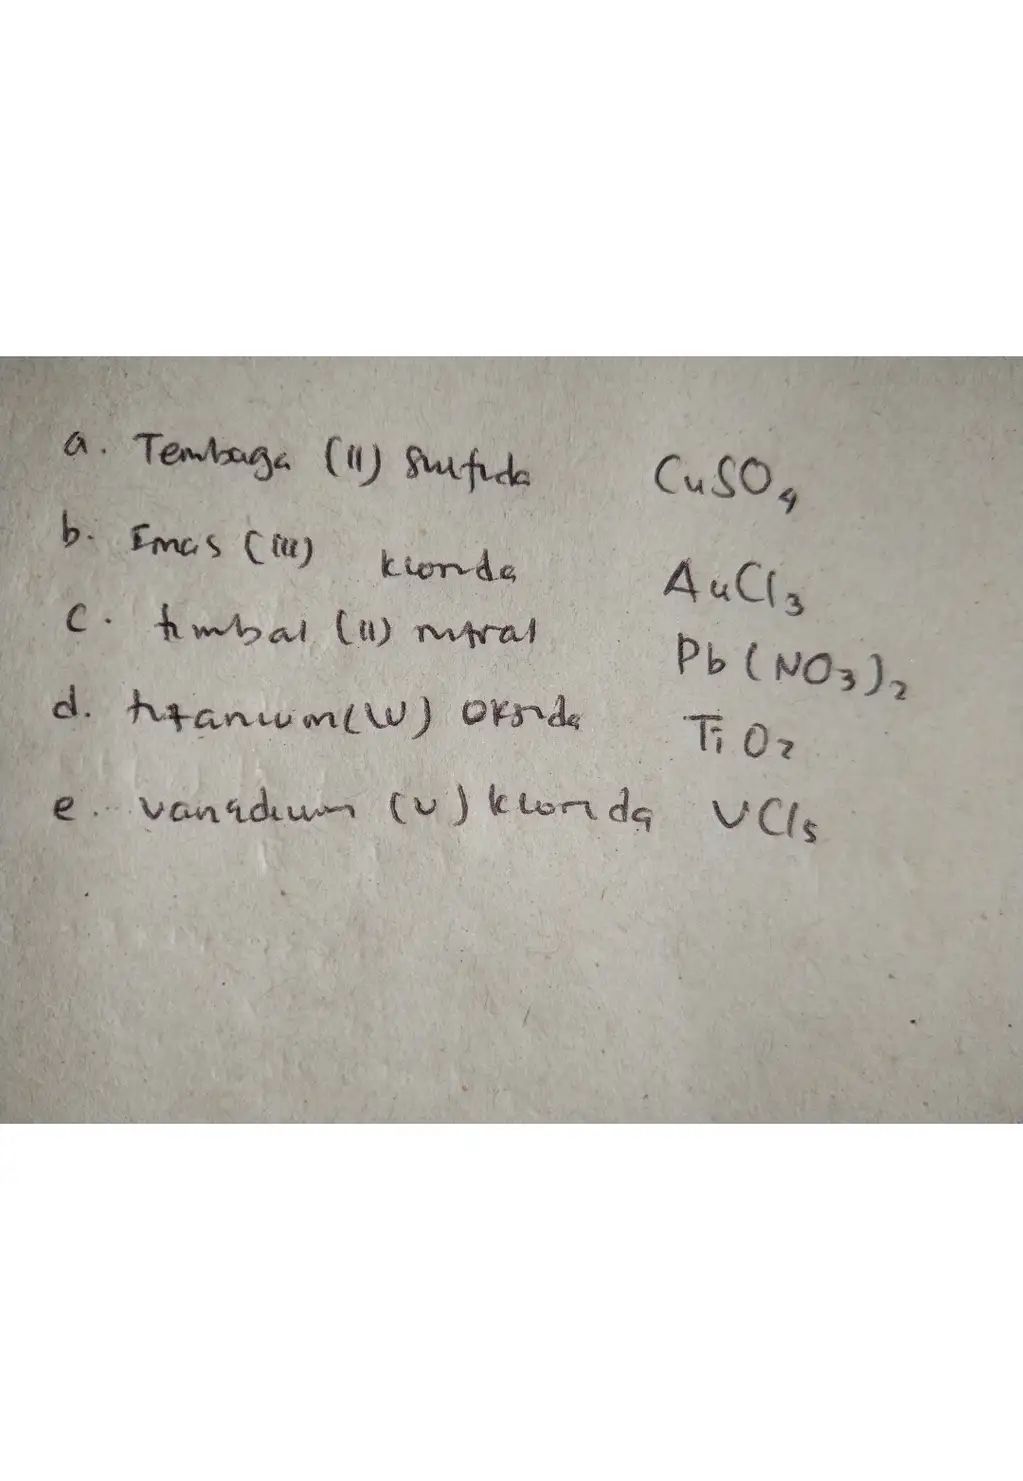 a. Tembaga (II) Sulfida CuSO4
b. Emas (III) klorida AuCl3
c. timbal (II) nitrat Pb(NO3)2
d. titanium(IV) Oksida TiO2
e. vanadium (V) klorida VCl5